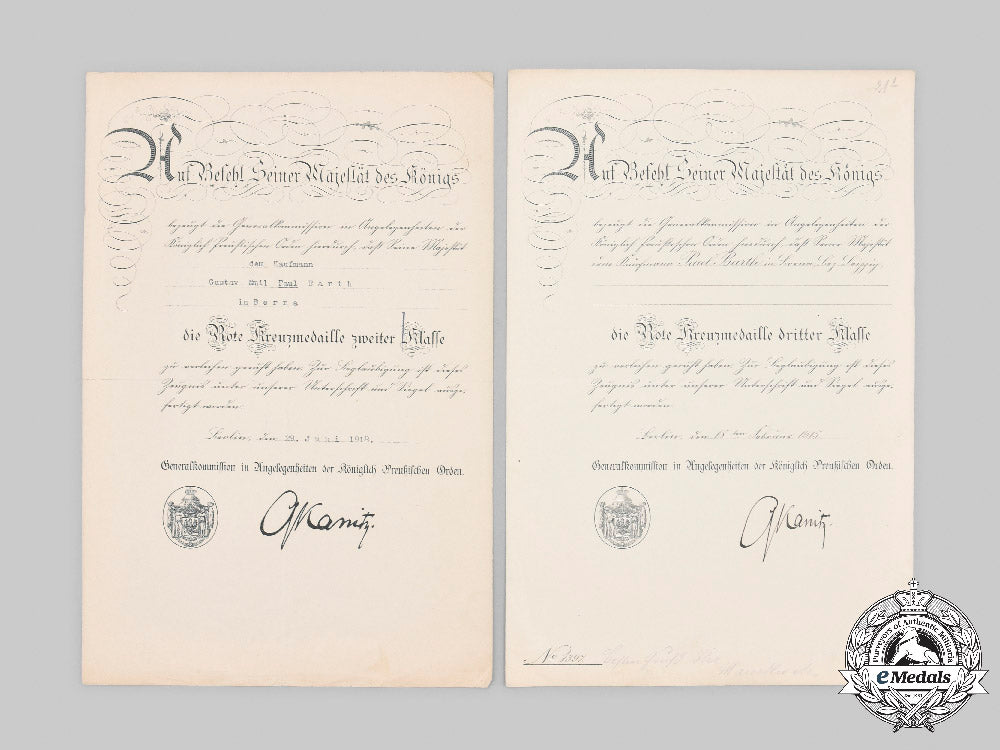 Auf Befehl Seiner Majestät des Königs
bezeugt die Generalkommission in Angelegenheiten der
Königlich Preußischen Orden hierdurch, daß Seine Majestät
dem Kaufmann
Gustav Emil Paul Barth
in Borna
die Rote Kreuzmedaille zweiter Klasse
zu verleihen geruht haben. Zur Beglaubigung ist dieses
Zeugnis unter unserer Unterschrift und Siegel ausge-
fertigt worden.
Berlin, den 29. Juni 1918.
Generalkommission in Angelegenheiten der Königlich Preußischen Orden.
GKanitz.
Auf Befehl Seiner Majestät des Königs
bezeugt die Generalkommission in Angelegenheiten der
Königlich Preußischen Orden hierdurch, daß Seine Majestät
dem Kaufmann Paul Barth in Borna, Bez. Leipzig,
die Rote Kreuzmedaille dritter Klasse
zu verleihen geruht haben. Zur Beglaubigung ist dieses
Zeugnis unter unserer Unterschrift und Siegel ausge-
fertigt worden.
Berlin, den 15ten Februar
Generalkommission in Angelegenheiten der Königlich Preußischen Orden.
GKanitz.
No
Purveyors of Authentic Militaria
eMedals